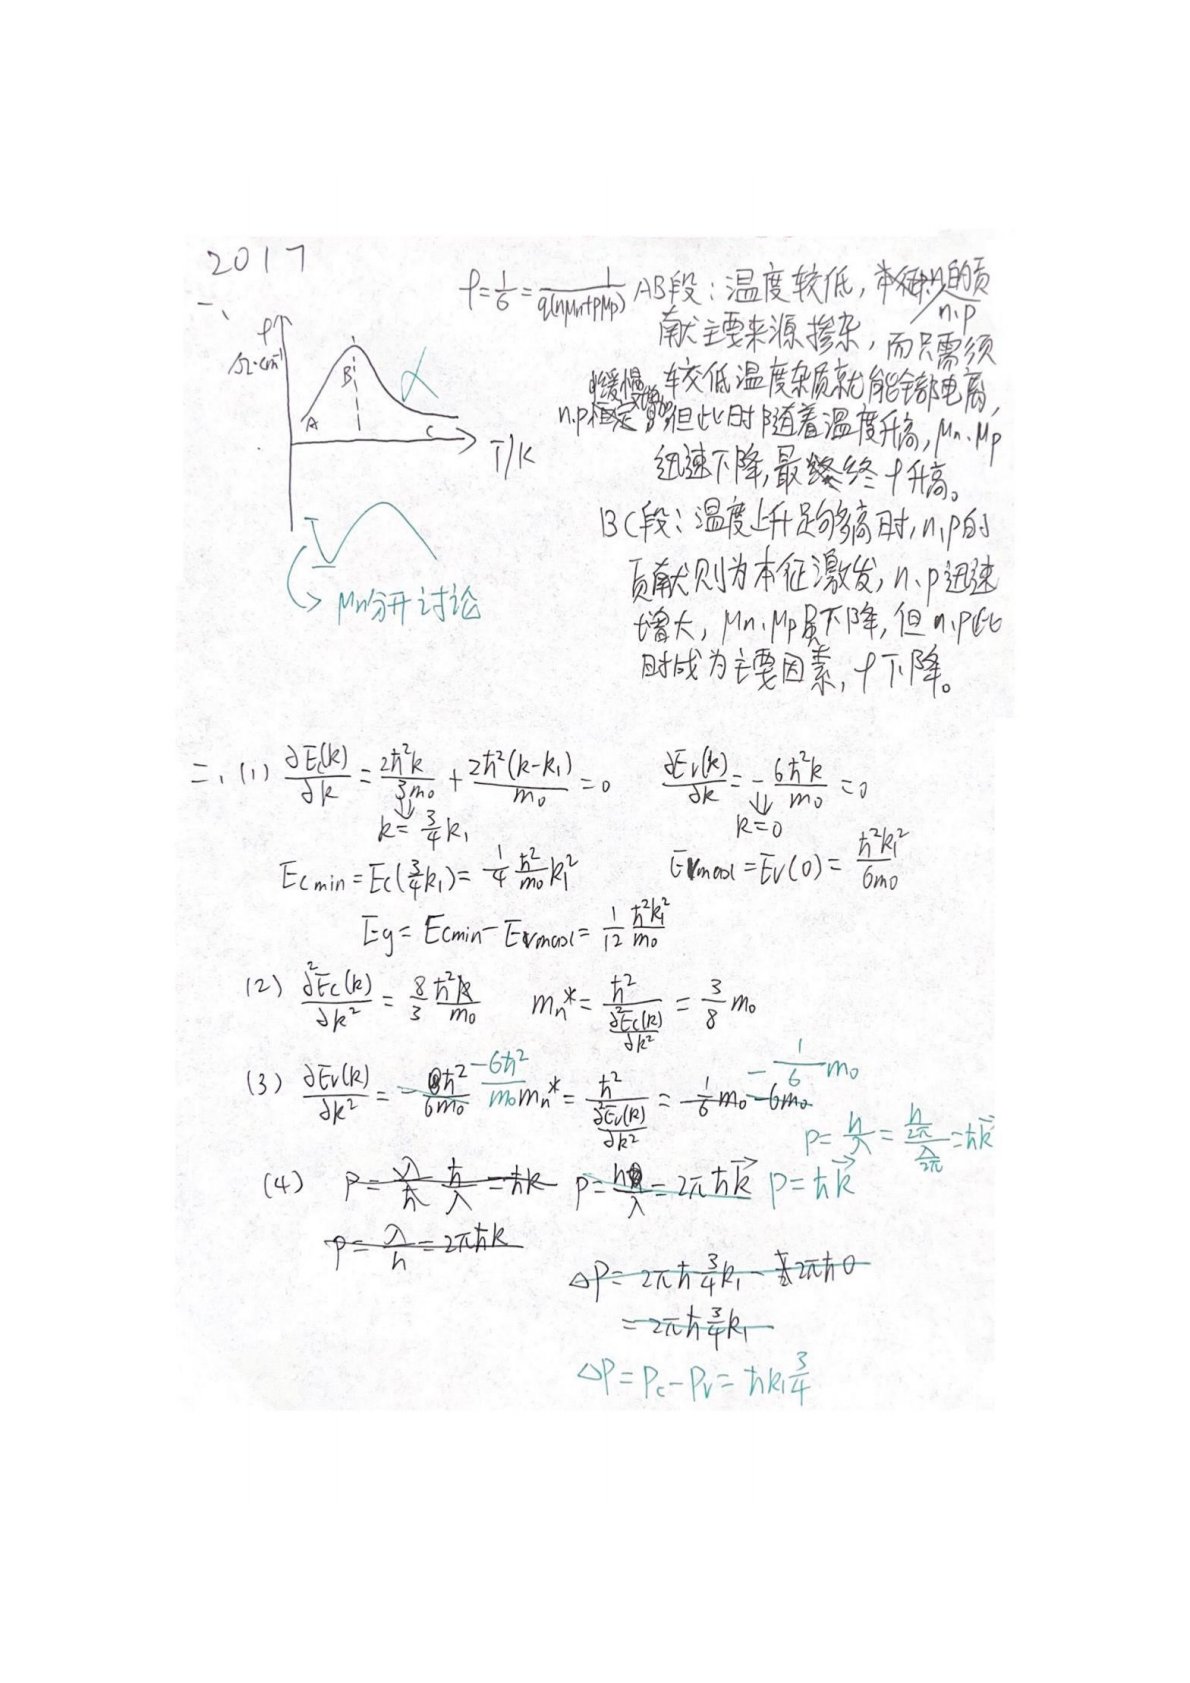 2017
一、
ρ
Ω·cm⁻¹
A
B
C
T/K
μn分开讨论
ρ=1/σ=1/q(nμn+pμp) AB段：温度较低，n、p的贡
献主要来源掺杂，而只需须
较低温度杂质就能全部电离，
n.p缓慢 但此时随着温度升高，μn、μp
迅速下降，最终ρ升高。
BC段：温度上升足够高时，n,p的
贡献则为本征激发，n、p迅速
增大，μn、μp虽下降，但n,p此
时成为主要因素，ρ下降。
二、(1) ∂Ec(k)/∂k = 2ħ²k/3m₀ + 2ħ²(k-k₁)/m₀ = 0 ∂Ev(k)/∂k = -6ħ²k/m₀ = 0
⇓ k = 3/4 k₁ ⇓ k=0
Ecmin = Ec(3/4 k₁) = 1/4 ħ²/m₀ k₁² Evmax = Ev(0) = ħ²k₁²/6m₀
Eg = Ecmin - Evmax = 1/12 ħ²k₁²/m₀
(2) ∂²Ec(k)/∂k² = 8/3 ħ²/m₀ mn* = ħ²/(∂²Ec(k)/∂k²) = 3/8 m₀
(3) ∂Ev(k)/∂k² = -6ħ²/m₀ mn* = ħ²/(∂²Ev(k)/∂k²) = -1/6 m₀ -6m₀ -1/6 m₀
P = h/λ = (h/2π)/(λ/2π) = ħk⃗
(4) P = λ/ħ ħ/λ = ħk P = h/λ = 2πħk⃗ P = ħk⃗
P = λ/h = 2πħk
ΔP = 2πħ 3/4 k₁ - 2πħ0
= 2πħ 3/4 k₁
ΔP = Pc - Pv = ħk₁ 3/4